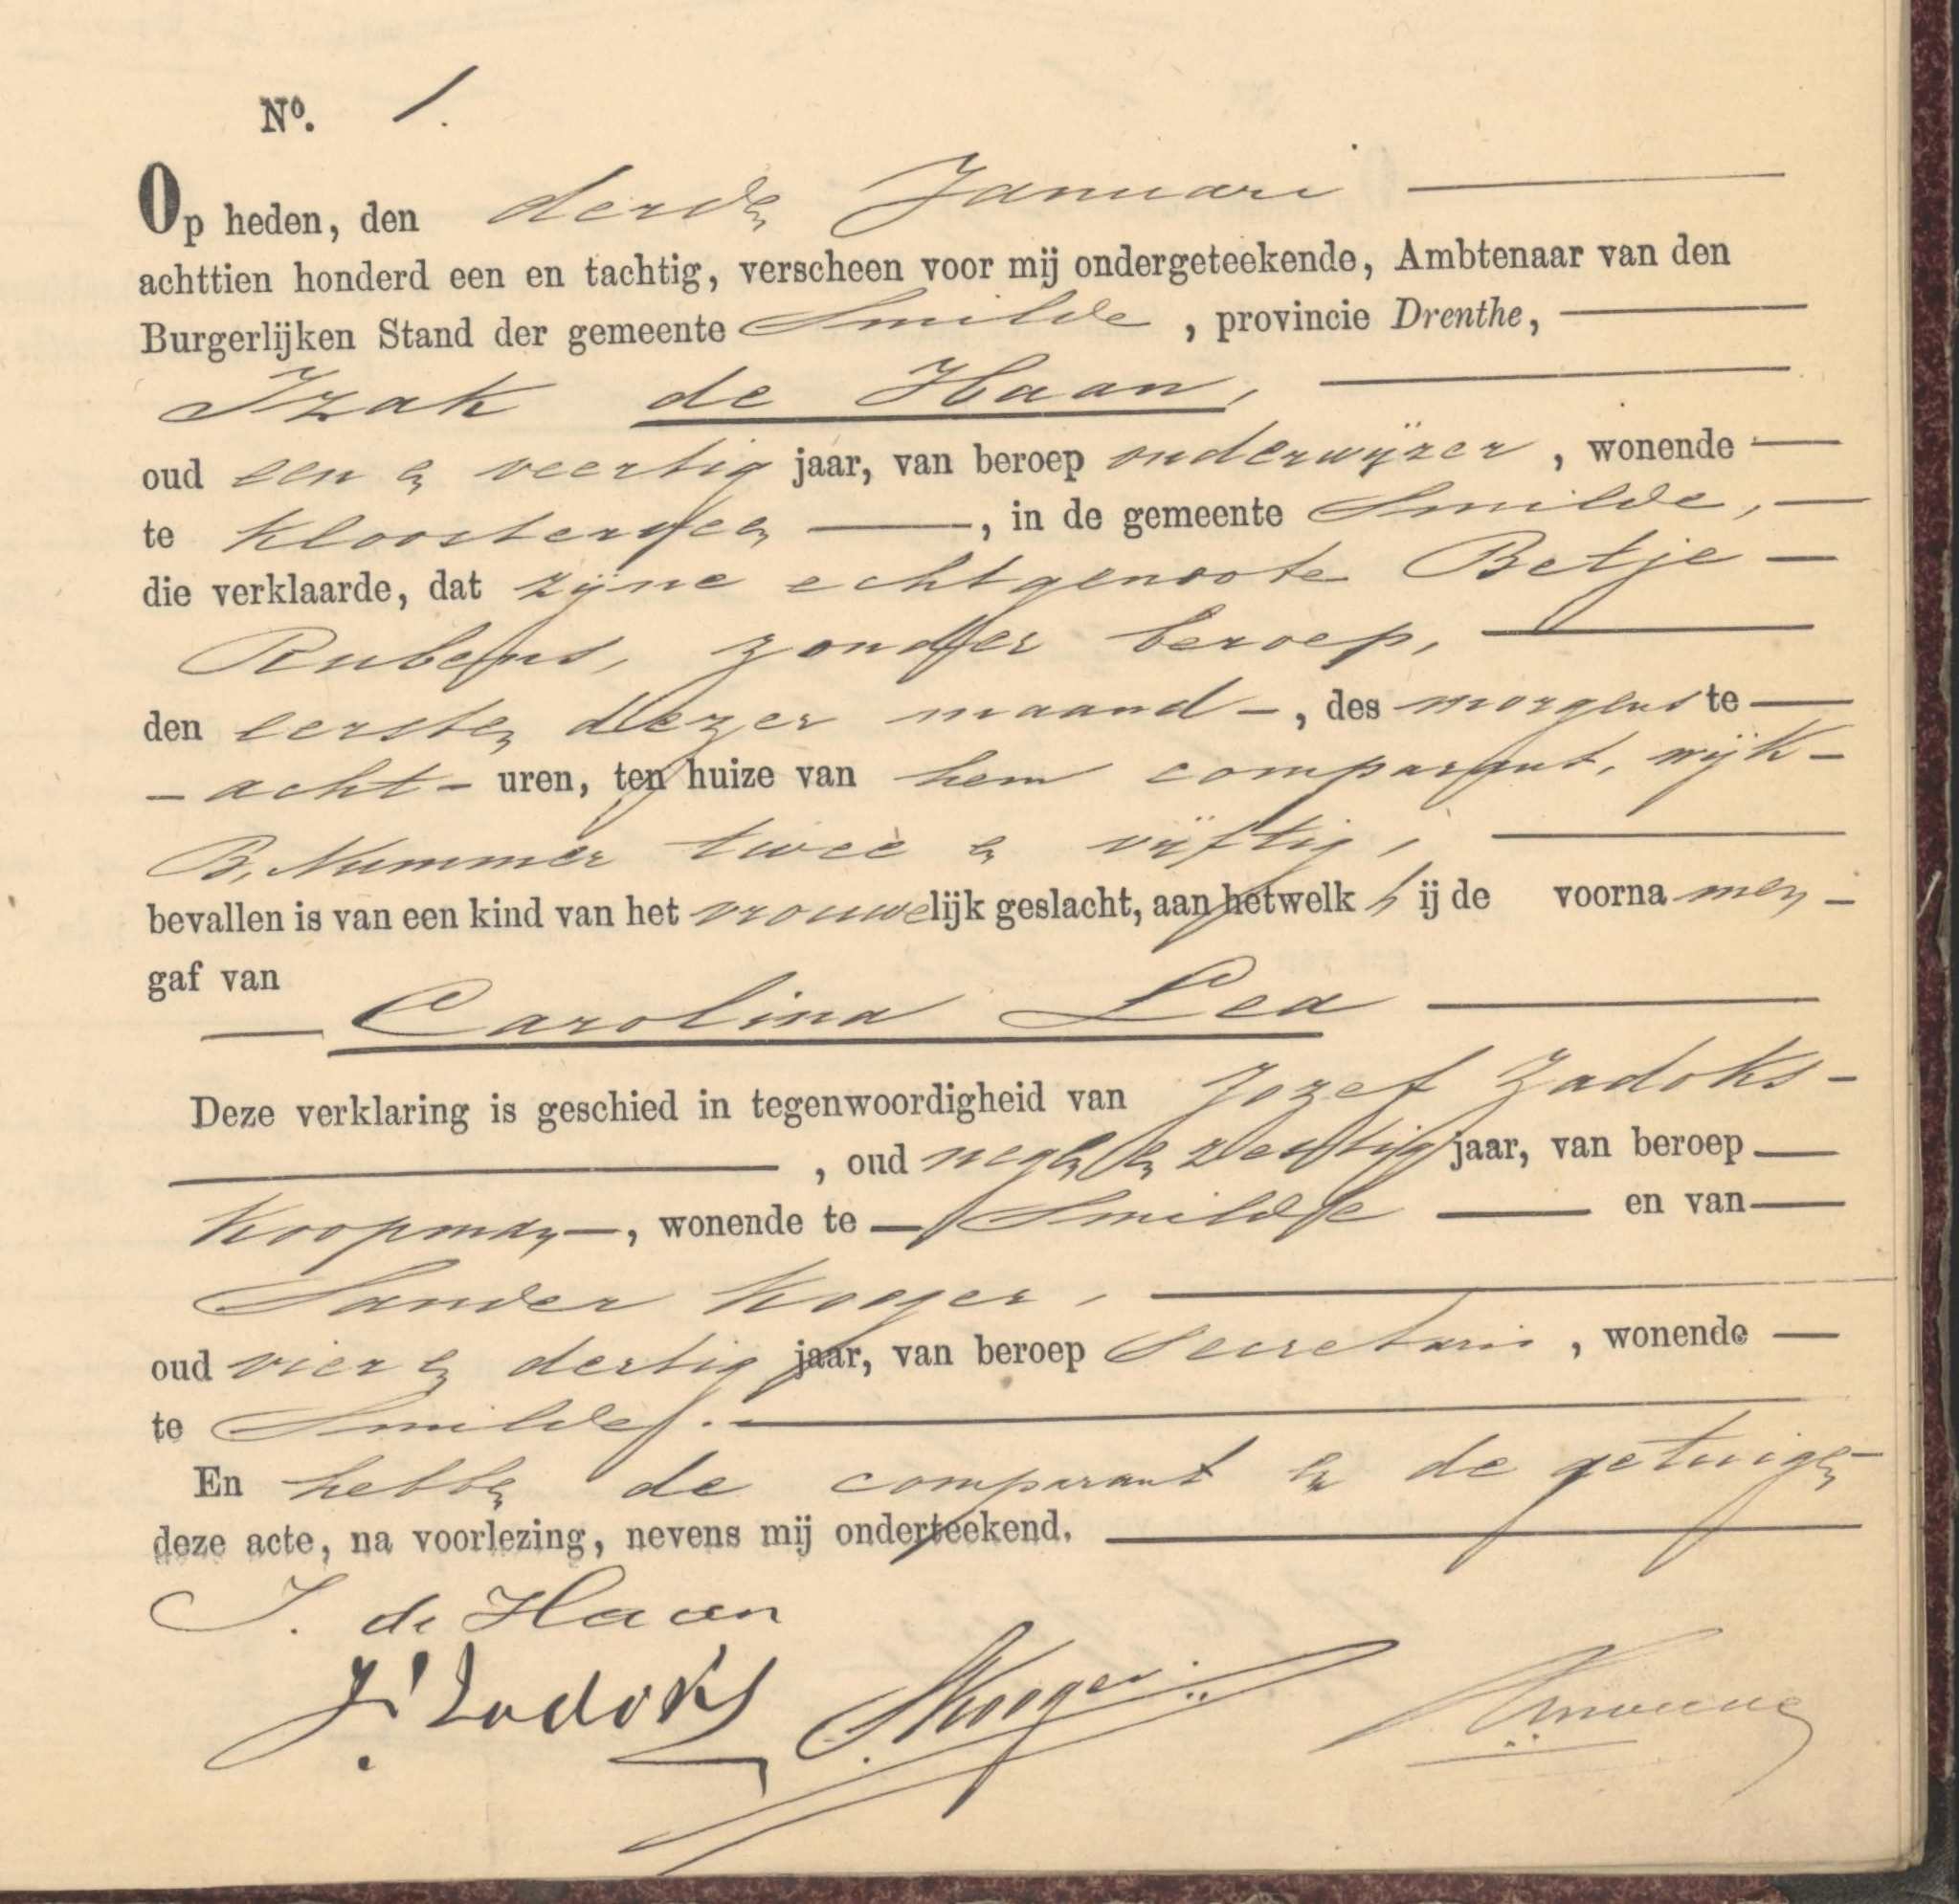 No. 1.
Op heden, den derden Januari
achttien honderd een en tachtig, verscheen voor mij ondergeteekende, Ambtenaar van den
Burgerlijken Stand der gemeente Smilde, provincie Drenthe,
Izak de Haan,
oud een en veertig jaar, van beroep onderwijzer, wonende
te Kloosterveen, in de gemeente Smilde,
die verklaarde, dat zijne echtgenoote Betje
Rubens, zonder beroep,
den eersten dezer maand, des morgens te
acht uren, ten huize van hem comparant, wijk
B, Nummer twee en vijftig,
bevallen is van een kind van het vrouwelijk geslacht, aan hetwelk hij de voornamen
gaf van
Carolina Lea
Deze verklaring is geschied in tegenwoordigheid van Jozef Zadoks
, oud negen en zestig jaar, van beroep
Koopman, wonende te Smilde en van
Sander Kooger,
oud vier en dertig jaar, van beroep Secretaris, wonende
te Smilde.
En hebben de comparant en de getuigen
deze acte, na voorlezing, nevens mij onderteekend.
I. de Haan
J. Zadoks SKooger